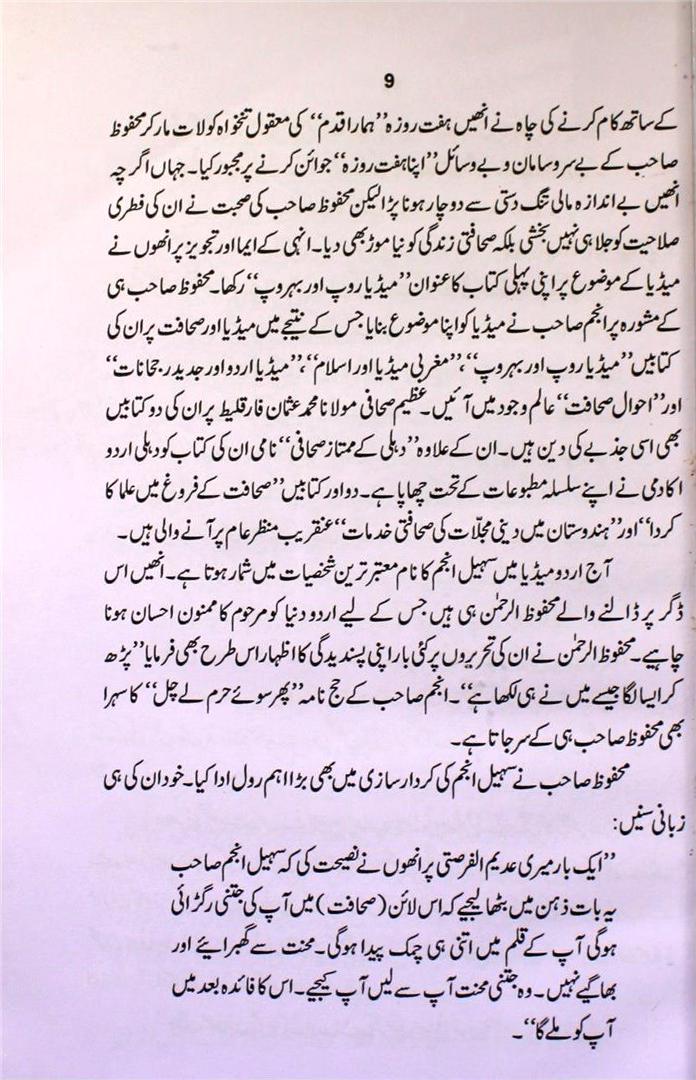 9
کے ساتھ کام کرنے کی چاہ نے انھیں ہفت روزہ ’’ہمارا قدم‘‘ کی معقول تنخواہ کو لات مار کر محفوظ
صاحب کے بے سروسامان و بے وسائل ’’اپنا ہفت روزہ‘‘ جوائن کرنے پر مجبور کیا۔ جہاں اگر چہ
انھیں بے اندازہ مالی تنگ دستی سے دوچار ہونا پڑا لیکن محفوظ صاحب کی صحبت نے ان کی فطری
صلاحیت کو جلا ہی نہیں بخشی بلکہ صحافتی زندگی کو نیا موڑ بھی دیا۔ انہی کے ایما اور تجویز پر انھوں نے
میڈیا کے موضوع پر اپنی پہلی کتاب کا عنوان ’’میڈیا روپ اور بہروپ‘‘ رکھا۔ محفوظ صاحب ہی
کے مشورہ پر انجم صاحب نے میڈیا کو اپنا موضوع بنایا جس کے نتیجے میں میڈیا اور صحافت پر ان کی
کتابیں ’’میڈیا روپ اور بہروپ‘‘، ’’مغربی میڈیا اور اسلام‘‘، ’’میڈیا اردو اور جدید رجحانات‘‘
اور ’’احوال صحافت‘‘ عالم وجود میں آئیں۔ عظیم صحافی مولانا محمد عثمان فارقلیط پر ان کی دو کتابیں
بھی اسی جذبے کی دین ہیں۔ ان کے علاوہ ’’دہلی کے ممتاز صحافی‘‘ نامی ان کی کتاب کو دہلی اردو
اکادمی نے اپنے سلسلہ مطبوعات کے تحت چھاپا ہے۔ دو اور کتابیں ’’صحافت کے فروغ میں علما کا
کردا‘‘ اور ’’ہندوستان میں دینی مجلّات کی صحافتی خدمات‘‘ عنقریب منظر عام پر آنے والی ہیں۔
آج اردو میڈیا میں سہیل انجم کا نام معتبر ترین شخصیات میں شمار ہوتا ہے۔ انھیں اس
ڈگر پر ڈالنے والے محفوظ الرحمٰن ہی ہیں جس کے لیے اردو دنیا کو مرحوم کا ممنون احسان ہونا
چاہیے۔ محفوظ الرحمٰن نے ان کی تحریروں پر کئی بار اپنی پسندیدگی کا اظہار اس طرح بھی فرمایا ’’پڑھ
کر ایسا لگا جیسے میں نے ہی لکھا ہے‘‘۔ انجم صاحب کے حج نامہ ’’پھر سوئے حرم لے چل‘‘ کا سہرا
بھی محفوظ صاحب ہی کے سر جاتا ہے۔
محفوظ صاحب نے سہیل انجم کی کردار سازی میں بھی بڑا اہم رول ادا کیا۔ خود ان کی ہی
زبانی سنیں:
’’ایک بار میری عدیم الفرصتی پر انھوں نے نصیحت کی کہ سہیل انجم صاحب
یہ بات ذہن میں بٹھا لیجیے کہ اس لائن (صحافت) میں آپ کی جتنی رگڑائی
ہوگی آپ کے قلم میں اتنی ہی چمک پیدا ہوگی۔ محنت سے گھبرائیے اور
بھاگیے نہیں۔ وہ جتنی محنت آپ سے لیں آپ کیجیے۔ اس کا فائدہ بعد میں
آپ کو ملے گا‘‘۔